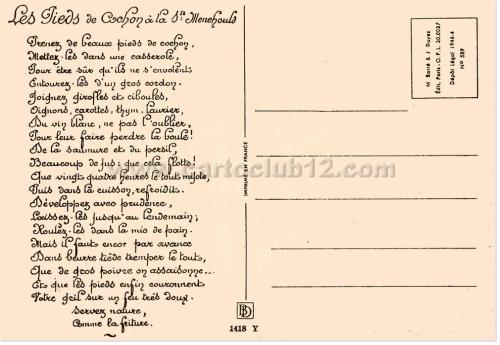 Les Pieds de Cochon à la Ste Menehould
Prenez de beaux pieds de cochon,
Mettez-les dans une casserole,
Pour être sûr qu'ils ne s'envolent
Entourez-les d'un gros cordon.
Joignez girofles et ciboules,
Oignons, carottes, thym, laurier,
Du vin blanc, ne pas l'oublier,
Pour leur faire perdre la boule!
De la saumure et du persil,
Beaucoup de jus: que cela flotte!
Que vingt quatre heures le tout mijote,
Puis dans la cuisson, refroidit.
Développez avec prudence,
Laissez-les jusqu'au lendemain;
Roulez-les dans la mie de pain.
Mais il faut encor par avance
Dans beurre tiède tremper le tout,
Que de gros poivre on assaisonne...
Et que les pieds enfin couronnent
Votre gril sur un feu très doux.
Servez nature,
Comme la friture.
www.cartoclub12.com
IMPRIMÉ EN FRANCE
BD
1418 Y
M. Barré & J. Dayez
Édit. Paris-O.P.L. 30.0037
Dépôt Légal 1946-4
No 589